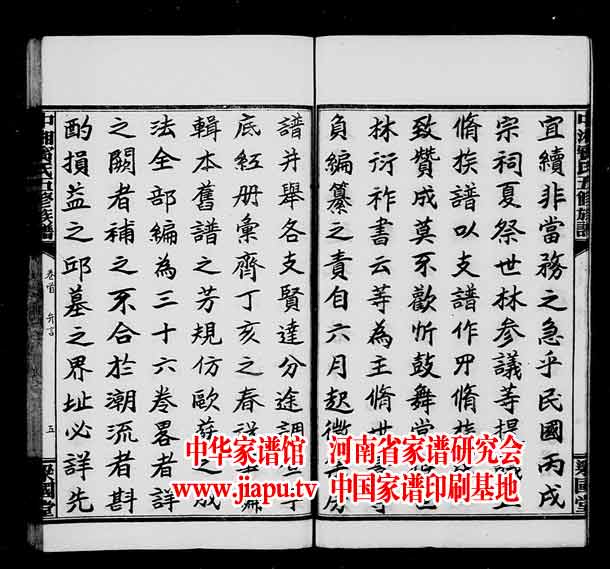 宜續非當務之急乎民國丙戌
宗祠夏祭世林參議等提議
脩族譜以支譜作卭脩族
致贊成莫不歡忻鼓舞當
林衍祚書云等為主脩世
負編纂之責自六月起徵
譜并舉各支賢達分途調
底紅册彙齊丁亥之春
輯本舊譜之芳規仿歐蘇之成
法全部編為三十六卷畧者詳
之闕者補之不合於潮流者斟
酌損益之邱墓之界址必詳先
卷首 弁言
五
中华家谱馆 河南省家谱研究会
www.jiapu.tv 中国家谱印刷基地